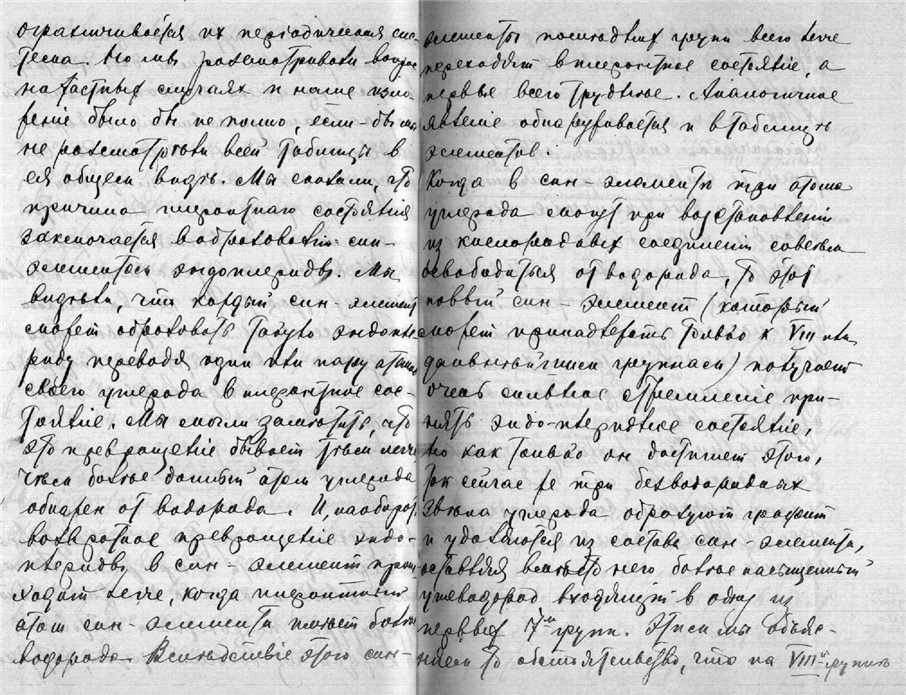 ограничивается их периодическая сис-
тема. Но мы разсматривали вопрос
на частных случаях и наше изло-
жение было бы не полно, если-бы мы
не разсмотрели всей таблицы в
ея общем виде. Мы сказали, что
причина пиронтнаго состояния
заключается в образовании син-
элементом эндоптеридъ. Мы
видели, что каждый син-элемент
может образовать такую эндопте-
риду переводя один или пару атомов
своего углерода в пиронтное сос-
тояние. Мы могли заметить, что
это превращение бывает тем легче
чем более данный атом углерода
обнажен от водорода. И, наоборот
возвратное превращение эндо-
птериды в син-элемент проис-
ходит легче, когда пиронтный
атом син-элемента имеет более
водорода. Вследствие этого син-
элементы последних групп всего легче
переходят в пиронтное состояние, а
первые всего труднее. Аналогичное
явление обнаруживается и в таблице
элементов.
Когда в син-элементе три атома
углерода смогут при возстановлении
из кислородных соединений совсем
освободиться от водорода, то этот
новый син-элемент (который
может принадлежать только к VIII или
группам) получает
очень сильное стремление при-
нять эндо-птеридное состояние,
но как только он достигнет этого,
так сейчас же три безводородных
звена углерода образуют графит
и удаляются из состава син-элемента,
оставляя вместо него более насыщенный
углеводород входящий в одну из
первых 7ми групп. Этим мы объяс-
няем то обстоятельство, что на VIIIй группе